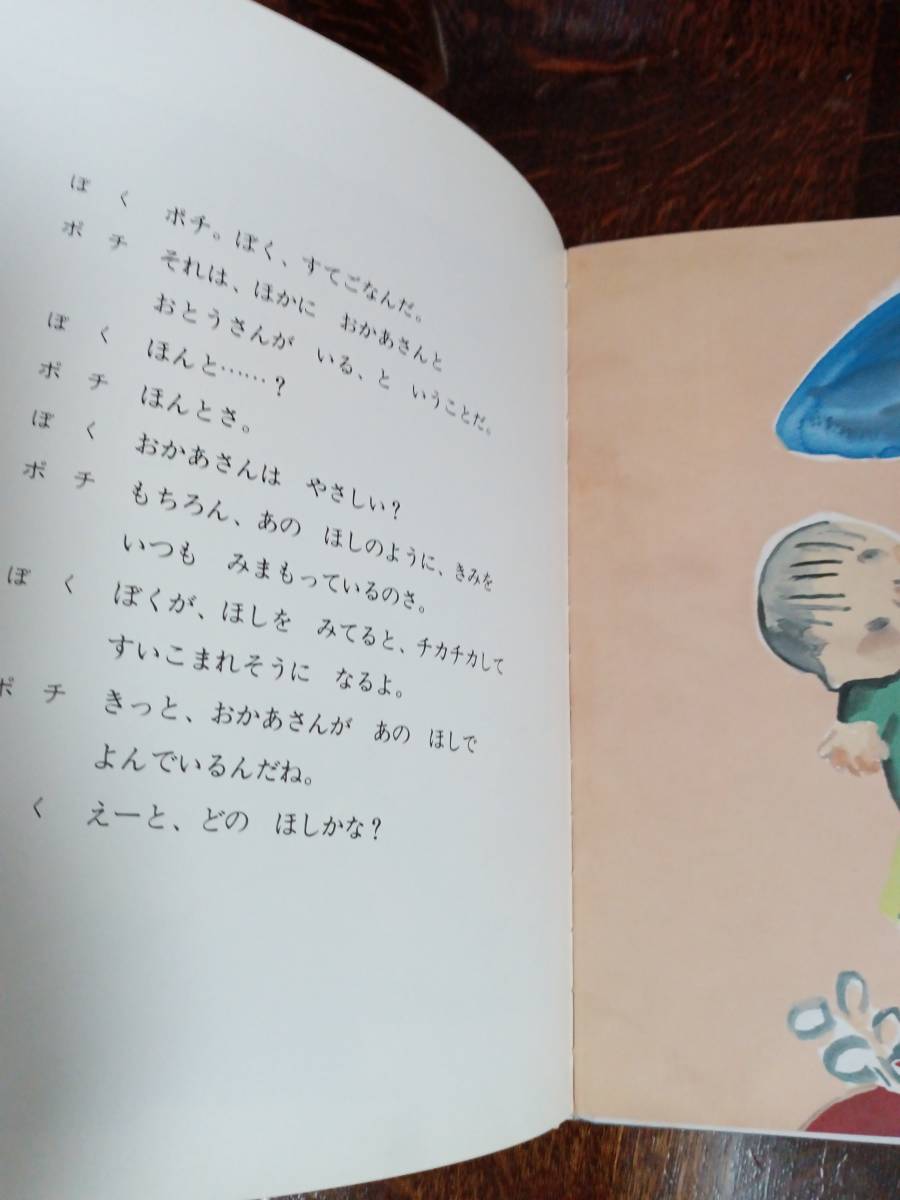 ぼく　ポチ。ぼく、すてごなんだ。
ポチ　それは、ほかに　おかあさんと
おとうさんが　いる、と　いうことだ。
ぼく　ほんと……？
ポチ　ほんとさ。
ぼく　おかあさんは　やさしい？
ポチ　もちろん、あの　ほしのように、きみを
いつも　みまもっているのさ。
ぼく　ぼくが、ほしを　みてると、チカチカして
すいこまれそうに　なるよ。
ポチ　きっと、おかあさんが　あの　ほしで
よんでいるんだね。
く　えーと、どの　ほしかな？